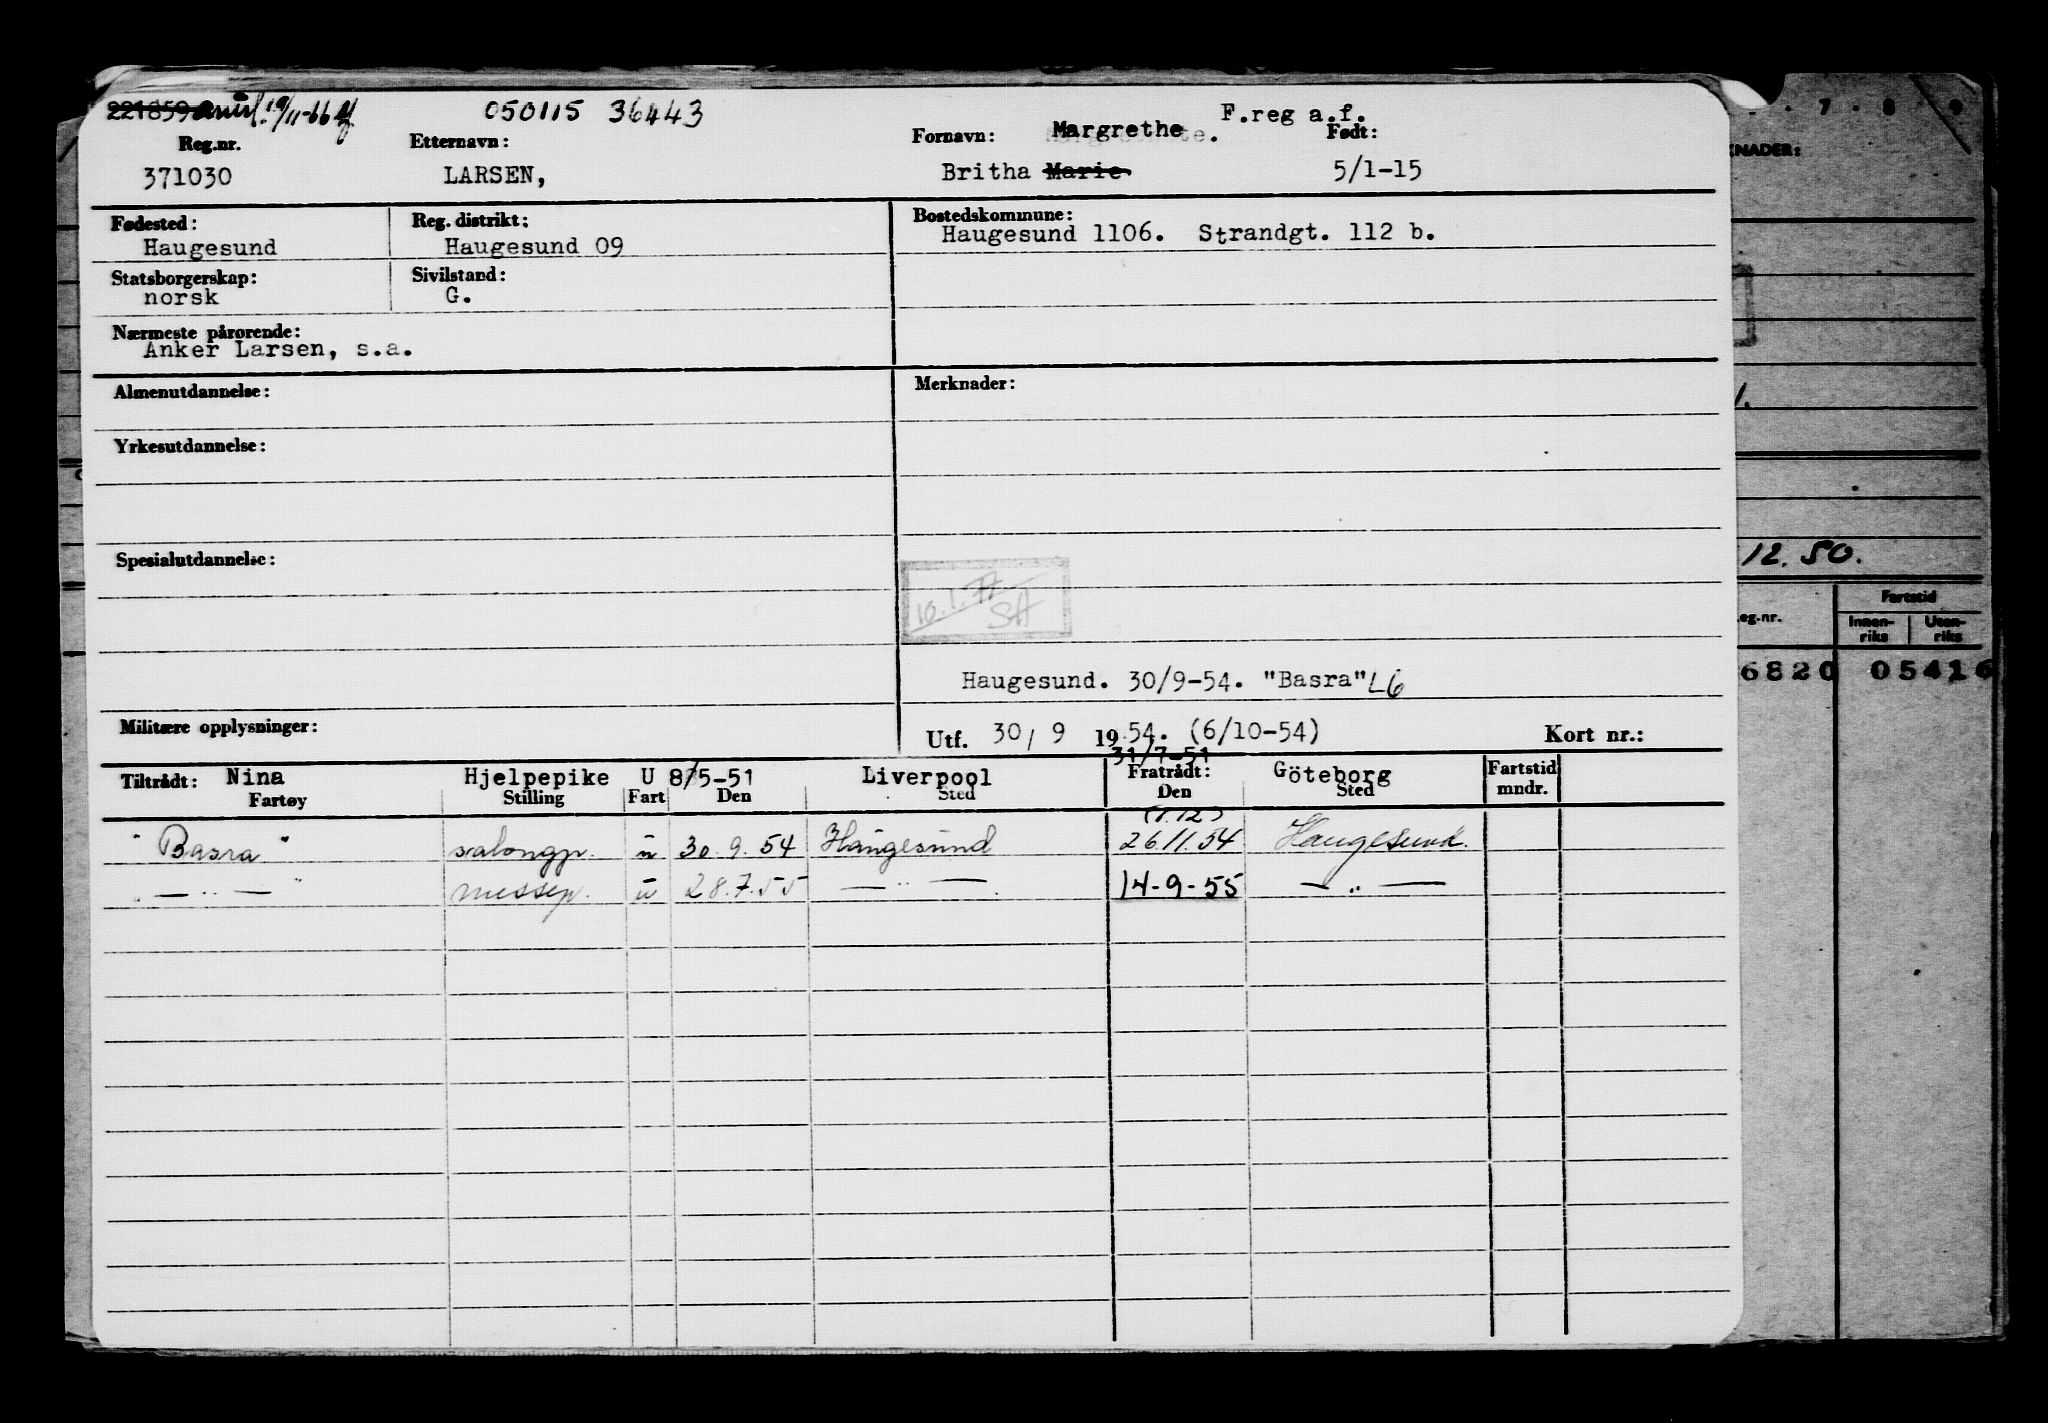 221859 anul. 19/11-66
050115 36443
F.reg a.f.
Reg.nr. Etternavn: Fornavn: Margrethe Født:
371030 LARSEN, Britha Marie 5/1-15
Fødested: Reg. distrikt: Bostedskommune:
Haugesund Haugesund 09 Haugesund 1106. Strandgt. 112 b.
Statsborgerskap: Sivilstand:
norsk G.
Nærmeste pårørende:
Anker Larsen, s.a.
Almenutdannelse: Merknader:
Yrkesutdannelse:
Spesialutdannelse:
10.1.77
SA
Haugesund. 30/9-54. "Basra" L6
Militære opplysninger:
Utf. 30/9 1954. (6/10-54) Kort nr.:
31/7-51
Tiltrådt: Nina Hjelpepike U 8/5-51 Liverpool Fratrådt: Göteborg Fartstid
Fartøy Stilling Fart Den Sted Den Sted mndr.
(1.12)
"Basra" salongp. u 30.9.54 Haugesund 26.11.54 Haugesund.
— " — messep. u 28.7.55 — " — 14-9-55 — " —
7 8 9
KNADER:
12.50.
eg.nr. Fartstid
Innen-riks Uten-riks
6820 05416